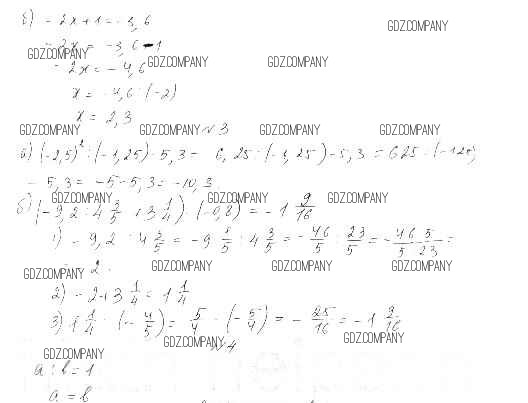 б) -2x+1=-3,6
GDZ.COMPANY
-2x = -3,6-1
GDZ.COMPANY
-2x = -4,6
GDZ.COMPANY GDZ.COMPANY
x = -4,6:(-2)
x = 2,3
GDZ.COMPANY GDZ.COMPANY №3 GDZ.COMPANY GDZ.COMPANY
а) (-2,5)²:(-1,25)-5,3 = 6,25:(-1,25)-5,3 = 625:(-125)
- 5,3 = -5-5,3 = -10,3
GDZ.COMPANY GDZ.COMPANY GDZ.COMPANY
б) (-9,2:4 3/5 + 3 1/4):(-0,8) = -1 9/16
1) -9,2:4 3/5 = -9 1/5:4 3/5 = -46/5:23/5 = -46/5·5/23 =
GDZ.COMPANY GDZ.COMPANY GDZ.COMPANY GDZ.COMPANY
- 2.
2) -2+3 1/4 = 1 1/4
3) 1 1/4:(-4/5) = 5/4·(-5/4) = -25/16 = -1 9/16
GDZ.COMPANY GDZ.COMPANY
№4
GDZ.COMPANY
a:b=1
a=b